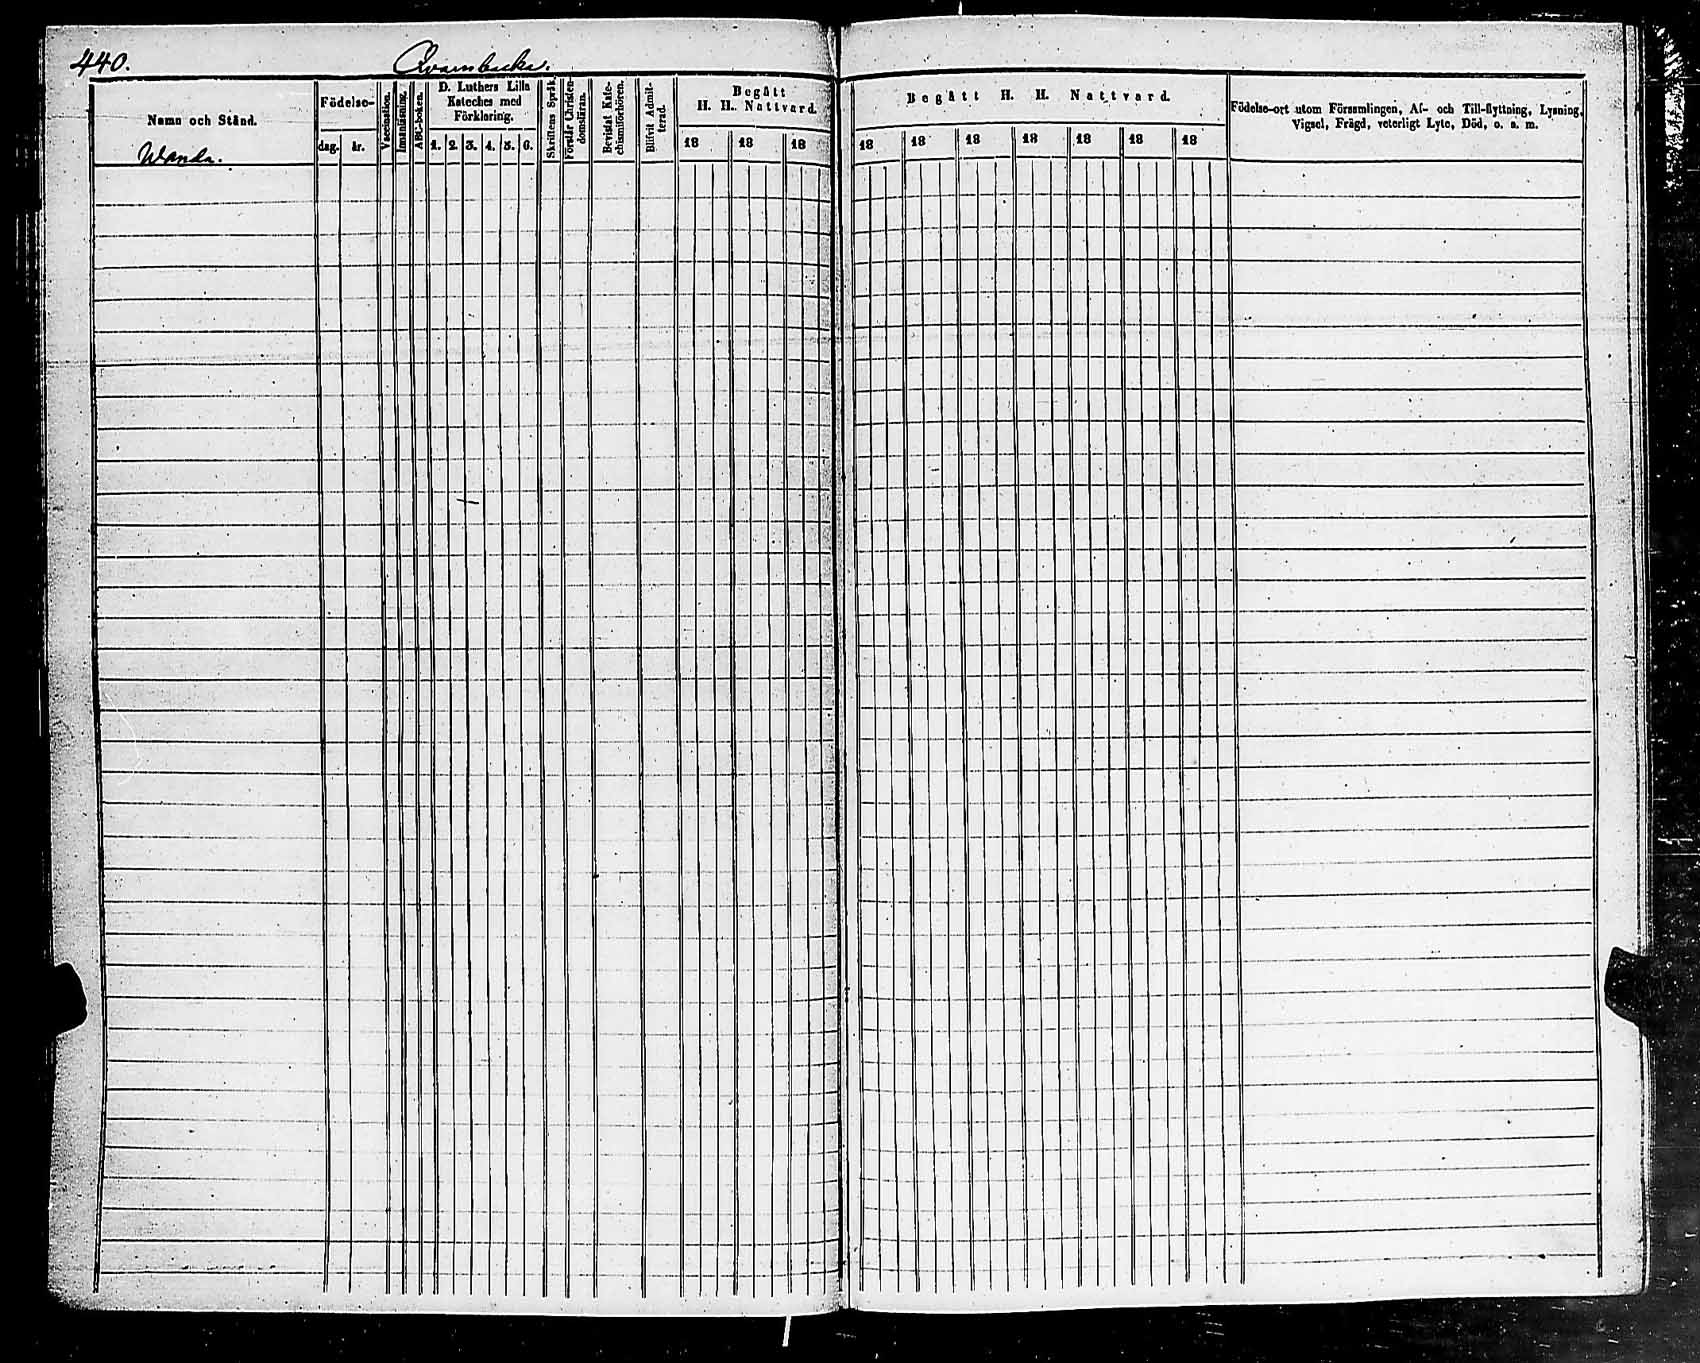 440. Qvarnbacka.
Namn och Stånd.
Wanda.
Födelse-
dag. år.
Vaccination.
Innanläsning.
ABC-boken.
D. Luthers Lilla
Kateches med
Förklaring.
1. 2. 3. 4. 5. 6.
Skriftens Språk.
Förstår Christen-
domsläran.
Bevistat Kate-
chismiförhören.
Blifvit Admit-
terad.
Begått
H. H. Nattvard.
18 18 18
Begått H. H. Nattvard.
18 18 18 18 18 18 18
Födelse-ort utom Församlingen, Af- och Till-flyttning, Lysning,
Vigsel, Frägd, veterligt Lyte, Död, o. s. m.